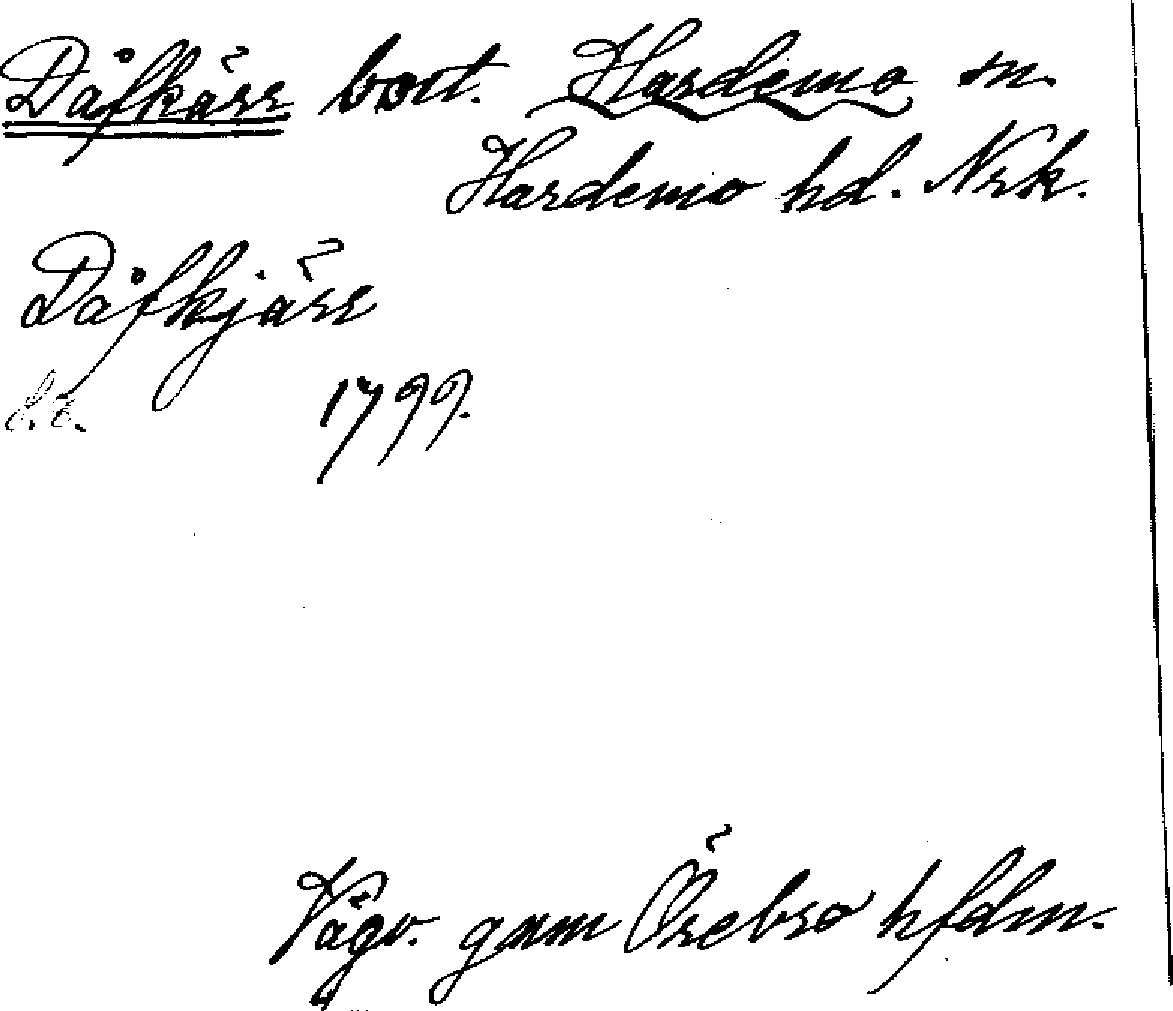 Dåfkärr bort. Hardemo sn
Hardemo hd. Nrk.
Dåfkjärr
1799.
Vägv. gnm Örebro hfdm.